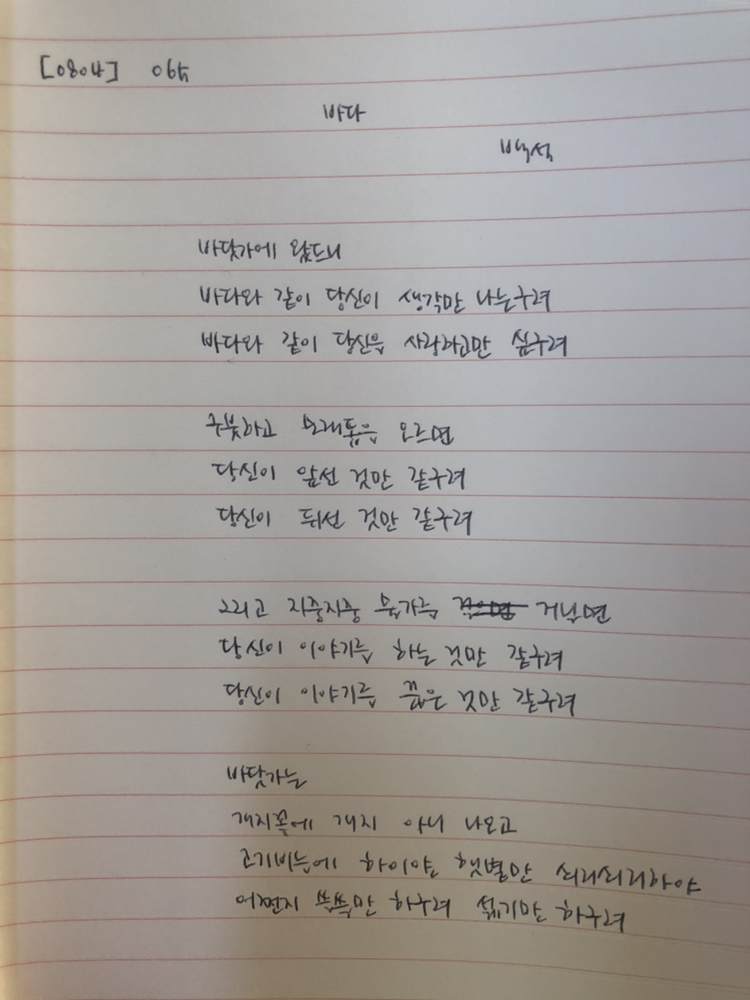 [0804] 04
바다
백석
바닷가에 왔드니
바다와 같이 당신이 생각만 나는구려
바다와 같이 당신을 사랑하고만 싶구려
구붓하고 모래톱을 오르면
당신이 앞선 것만 같구려
당신이 뒤선 것만 같구려
그리고 지중지중 물가를 거닐면
당신이 이야기를 하는 것만 같구려
당신이 이야기를 끊은 것만 같구려
바닷가는
개지꽃에 개지 아니 나오고
고기비눌에 하이얀 햇볕만 쇠리쇠리하야
어쩐지 쓸쓸만 하구려 섧기만 하구려